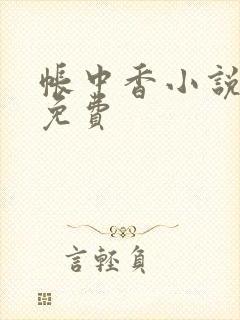 帳中香小說
免費
言輕負